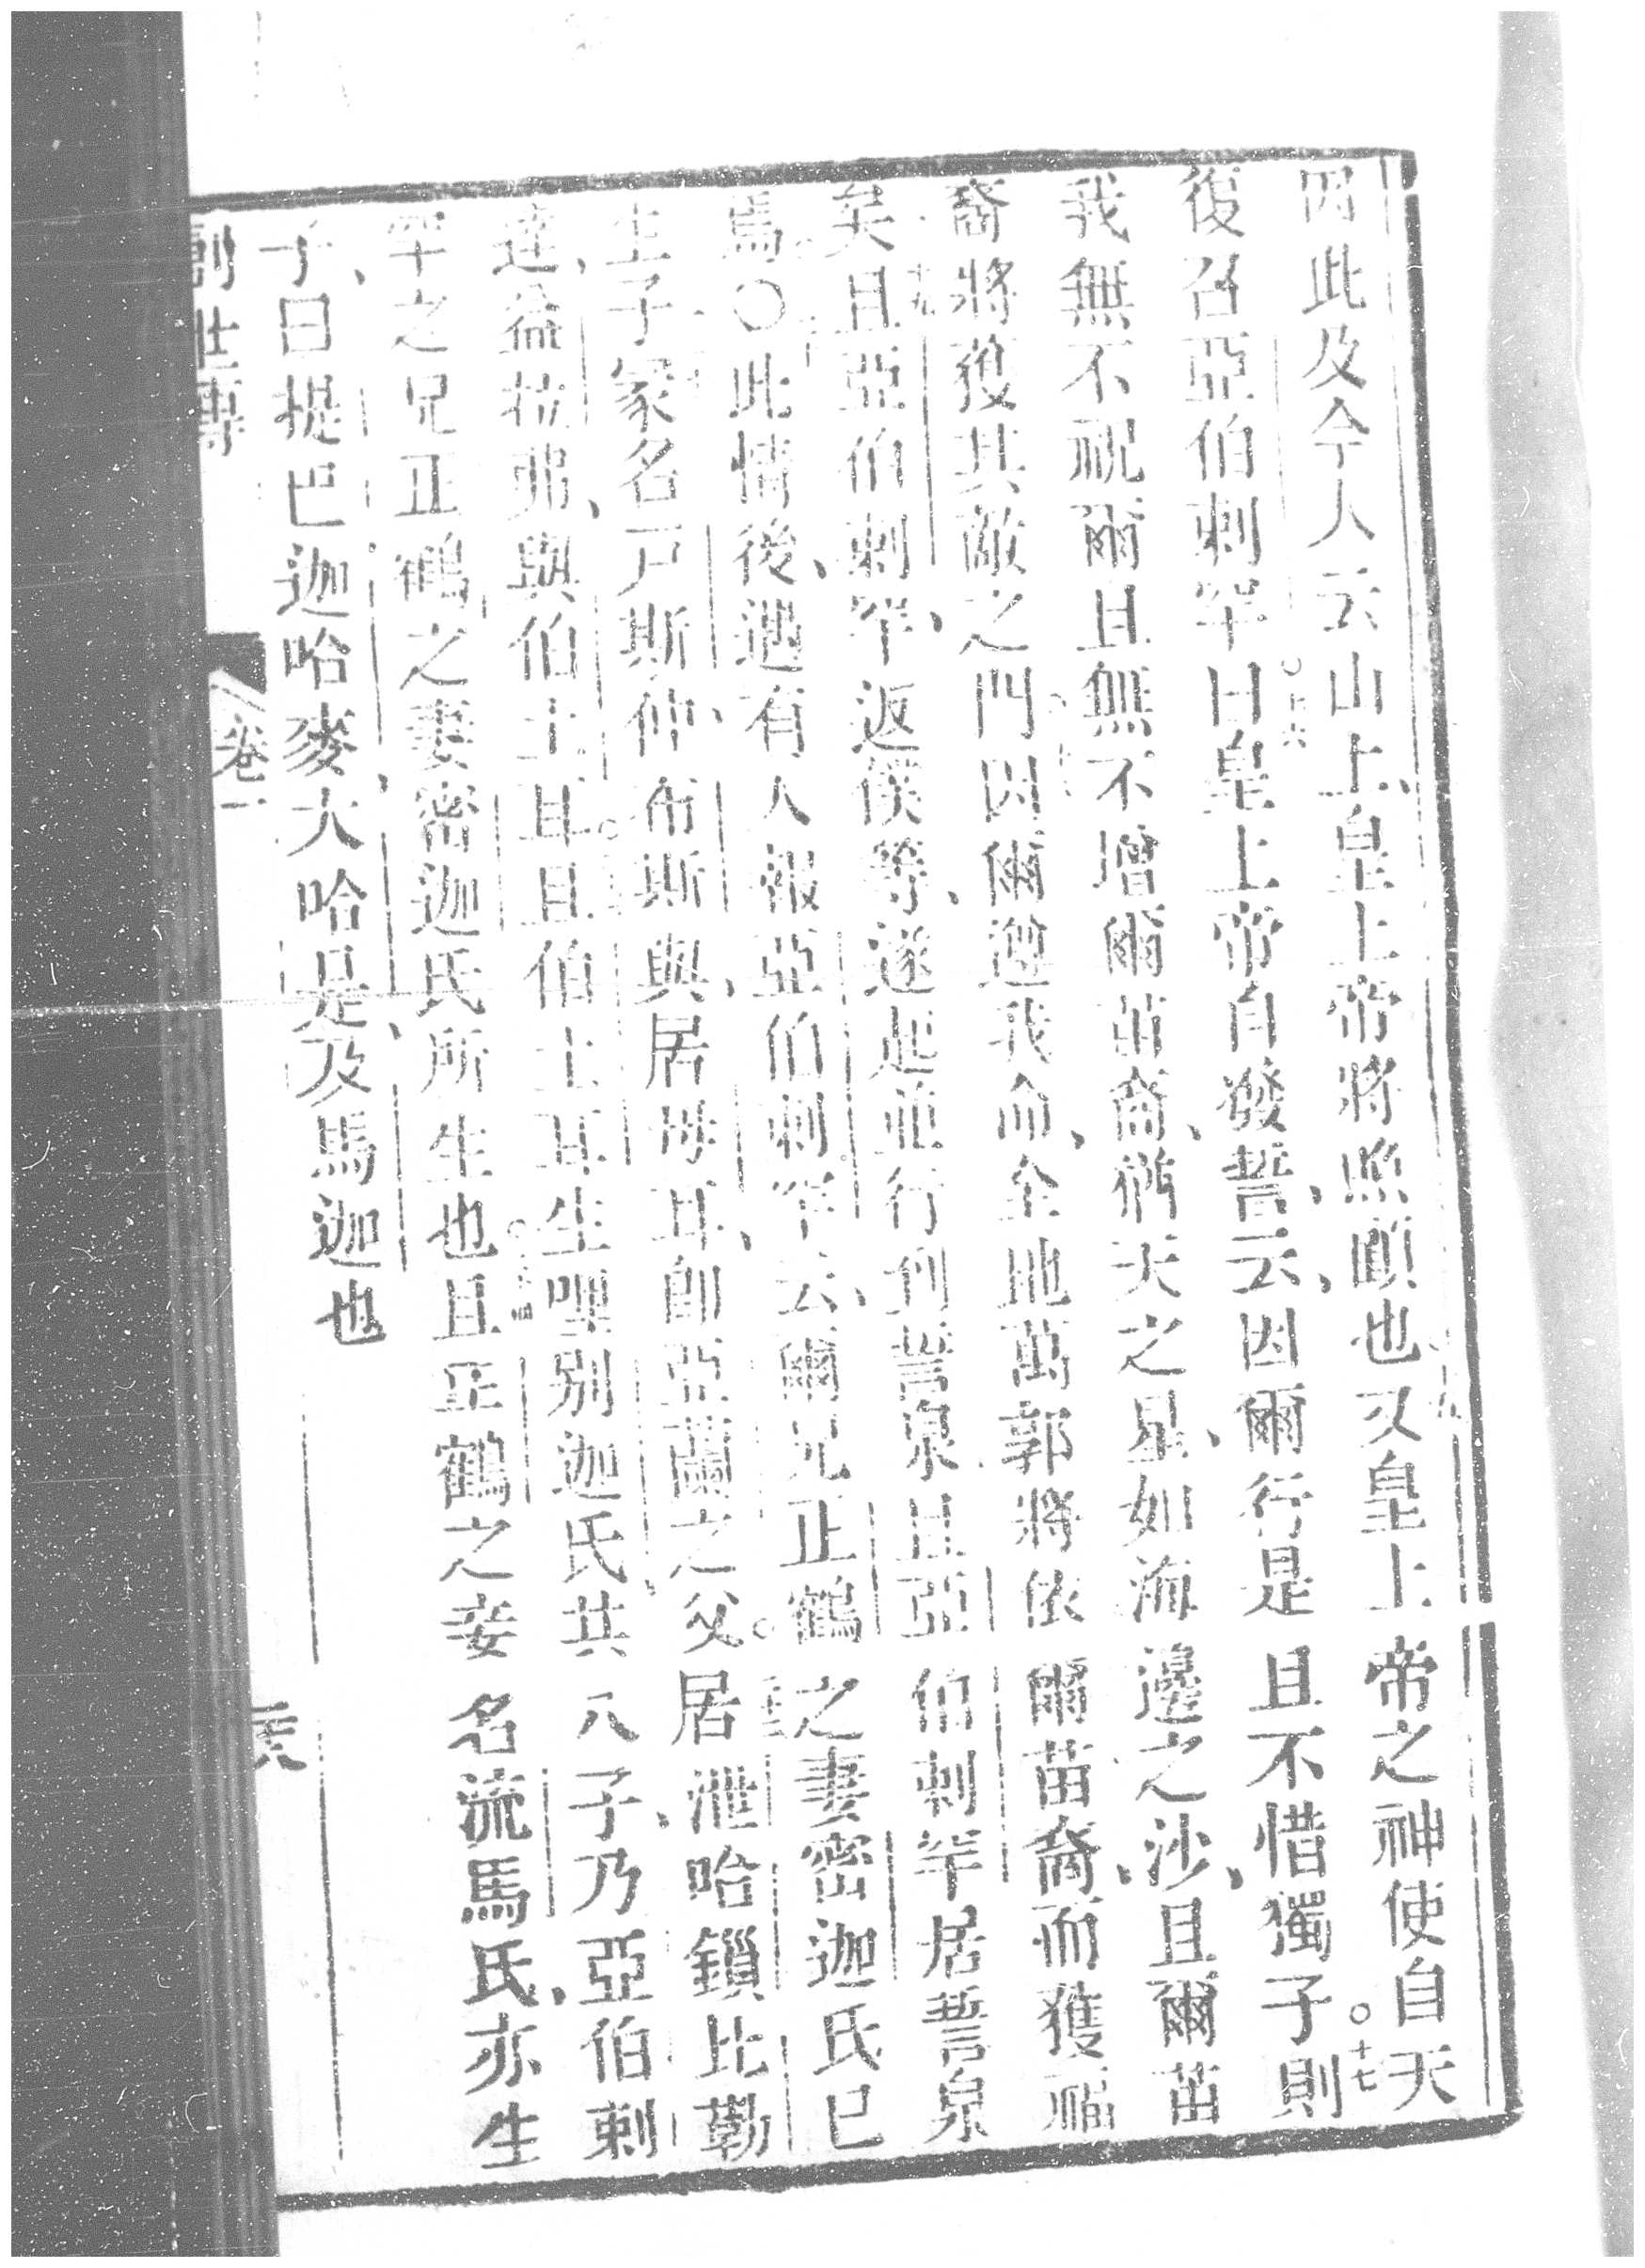 因此及今人云山上、皇上帝將照顧也○十五又皇上帝之神使自天
復召亞伯剌罕○十六曰皇上帝自發誓、云、因爾行是且不惜獨子○十七則
我無不祝爾且無不增爾苗裔、猶天之星、如海邊之沙、且爾苗
裔將獲其敵之門○十八因爾遵我命、全地萬郭將依爾苗裔、而獲福
矣○十九且亞伯剌罕、返僕等、遂起並行到誓泉且亞伯剌罕居誓泉
焉。○此情後、遇有人報亞伯剌罕云、爾兄正鶴之妻密迦氏已
生子冢名戸斯、仲布斯、與居母耳、即亞蘭之父。居泄哈鎖比勒
達、益拉弗、與伯土耳。且伯土耳生哩別迦氏、共八子、乃亞伯剌
罕之兄正鶴之妻密迦氏所生也○二十四且正鶴之妾名流馬氏、亦生
子、曰提巴迦哈麥、大哈是、及馬迦也
創世傳 卷一